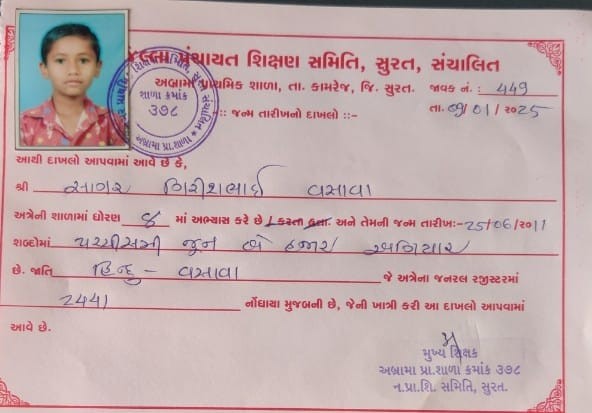 જિલ્લા પંચાયત શિક્ષણ સમિતિ, સુરત, સંચાલિત
અબ્રામા પ્રાથમિક શાળા, તા. કામરેજ, જિ. સુરત. જાવક નં. : 449
-:: જન્મ તારીખનો દાખલો ::- તા. 09/01/૨૦25
શાળા ક્રમાંક
૩૭૮
અબ્રામા પ્રા.શાળા
આથી દાખલો આપવામાં આવે છે કે,
શ્રી સાગર ગિરીશભાઈ વસાવા
અત્રેની શાળામાં ધોરણ ૪ માં અભ્યાસ કરે છે / કરતા હતા. અને તેમની જન્મ તારીખ:-25/06/૨૦11
શબ્દોમાં પચ્ચીસમી જૂન બે હજાર અગિયાર
છે. જાતિ હિન્દુ - વસાવા જે અત્રેના જનરલ રજીસ્ટરમાં
2441 નોંધાયા મુજબની છે, જેની ખાત્રી કરી આ દાખલો આપવામાં
આવે છે.
મુખ્ય શિક્ષક
અબ્રામા પ્રા.શાળા ક્રમાંક ૩૭૮
ન.પ્રા.શિ. સમિતિ, સુરત.